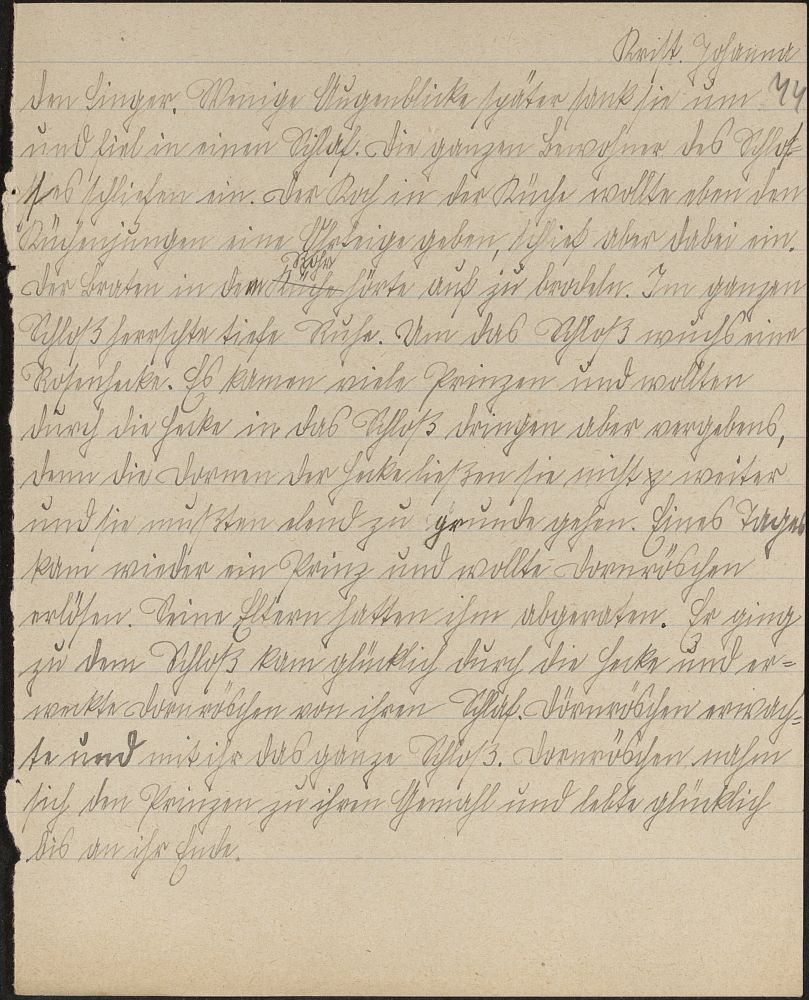 Krist. Johanna
44
den Finger. Wenige Augenblicke später sank sie um
und fiel in einen Schlaf. Die ganzen Bewohner des Schlos=
ses schliefen ein. Der Koch in der Küche wollte eben den
Küchenjungen eine Ohrfeige geben, schlief aber dabei ein.
Rohr
Der Braten in dem Küche hörte auf zu brodeln. Im ganzen
Schloß herrschte tiefe Ruhe. Um das Schloß wuchs eine
Rosenhecke. Es kamen viele Prinzen und wollten
durch die Hecke in das Schloß dringen aber vergebens,
denn die Dornen der Hecke ließen sie nicht weiter
und sie mußten elend zu grunde gehen. Eines Tages
kam wieder ein Prinz und wollte Dornröschen
erlösen. Seine Eltern hatten ihm abgeraten. Er ging
zu dem Schloß kam glücklich durch die Hecke und er=
weckte Dornröschen von ihren Schlaf. Dörnröschen erwach=
te und mit ihr das ganze Schloß. Dornröschen nahm
sich den Prinzen zu ihren Gemahl und lebte glücklich
bis an ihr Ende.